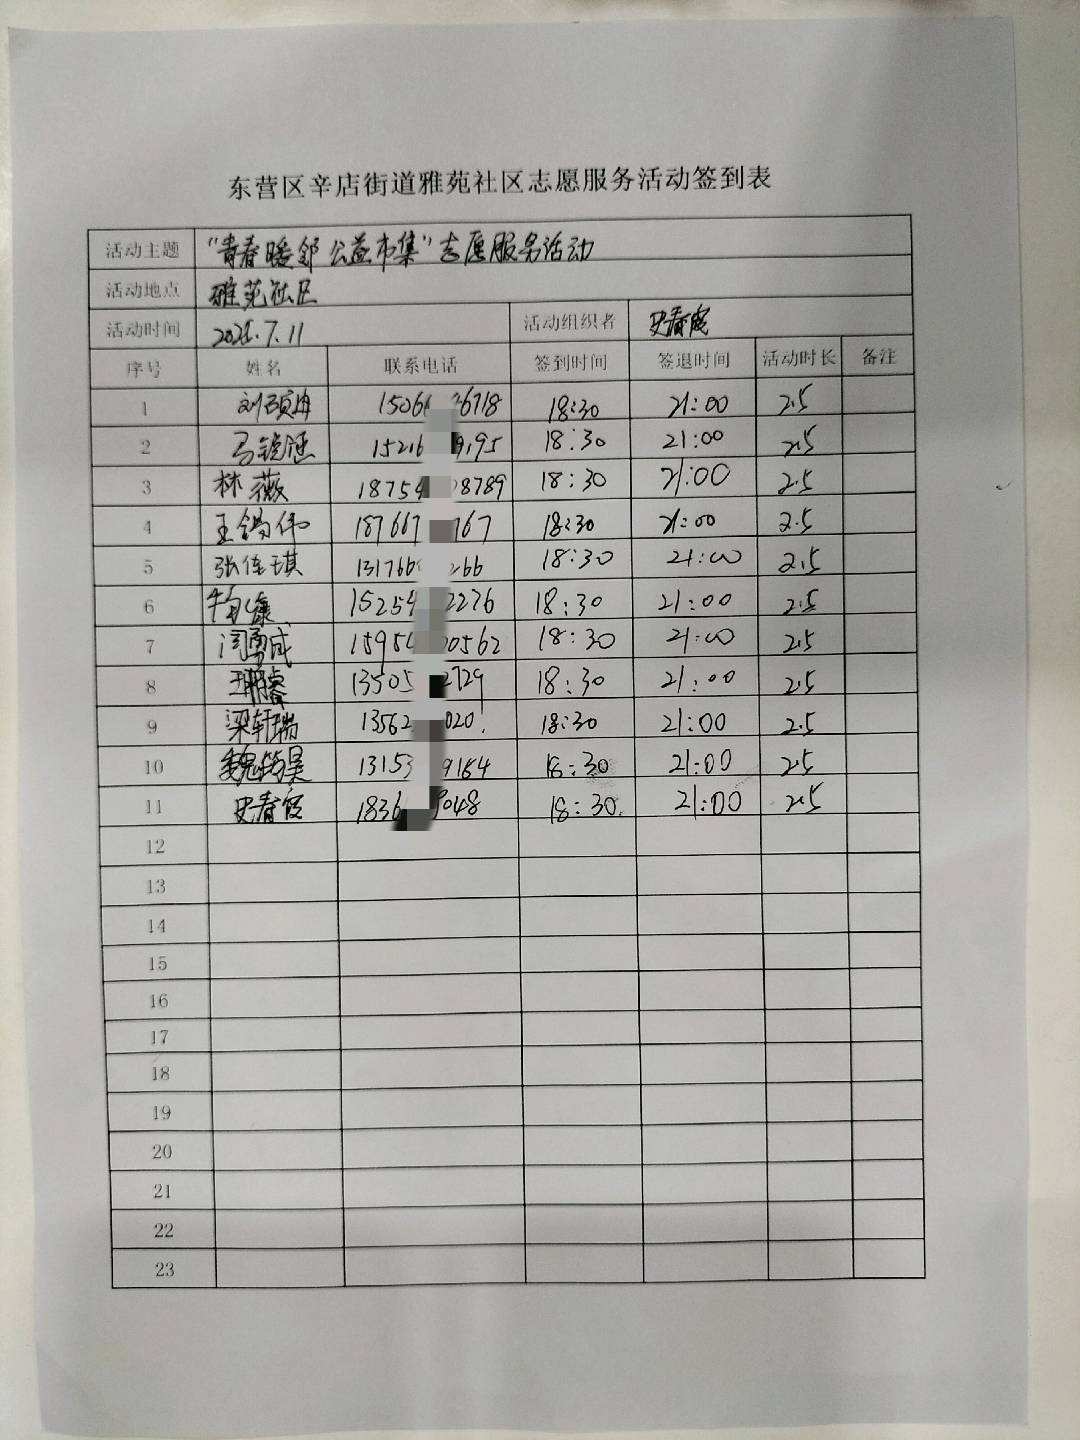 东营区辛店街道雅苑社区志愿服务活动签到表
活动主题 "青春暖邻 公益市集"志愿服务活动
活动地点 雅苑社区
活动时间 2025.7.11 活动组织者 史春霞
序号 姓名 联系电话 签到时间 签退时间 活动时长 备注
1 15066 6718 18:30 21:00 2.5
2 15216 9195 18:30 21:00 2.5
3 林薇 18754 8789 18:30 21:00 2.5
4 王锡伟 187667 767 18:30 21:00 2.5
5 张佳琪 131766 266 18:30 21:00 2.5
6 15254 2276 18:30 21:00 2.5
7 闫勇成 15954 00562 18:30 21:00 2.5
8 13505 2729 18:30 21:00 2.5
9 梁轩瑞 13562 020 18:30 21:00 2.5
10 13153 9164 18:30 21:00 2.5
11 史春霞 1836 9048 18:30 21:00 2.5
12
13
14
15
16
17
18
19
20
21
22
23